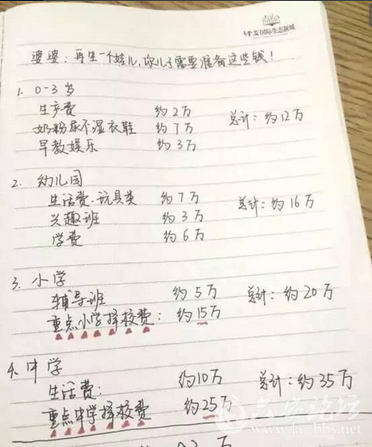 国际生态新城
婆婆：再生一个娃儿，你儿子需要准备这些钱！
1. 0-3岁
生产费 约2万
奶粉尿不湿衣鞋 约7万 总计：约12万
早教娱乐 约3万
2. 幼儿园
生活费·玩具类 约7万 总计：约16万
兴趣班 约3万
学费 约6万
3. 小学
辅导班 约5万 总计：约20万
重点小学择校费： 约15万
4. 中学
生活费： 约10万 总计：约35万
重点中学择校费 约25万